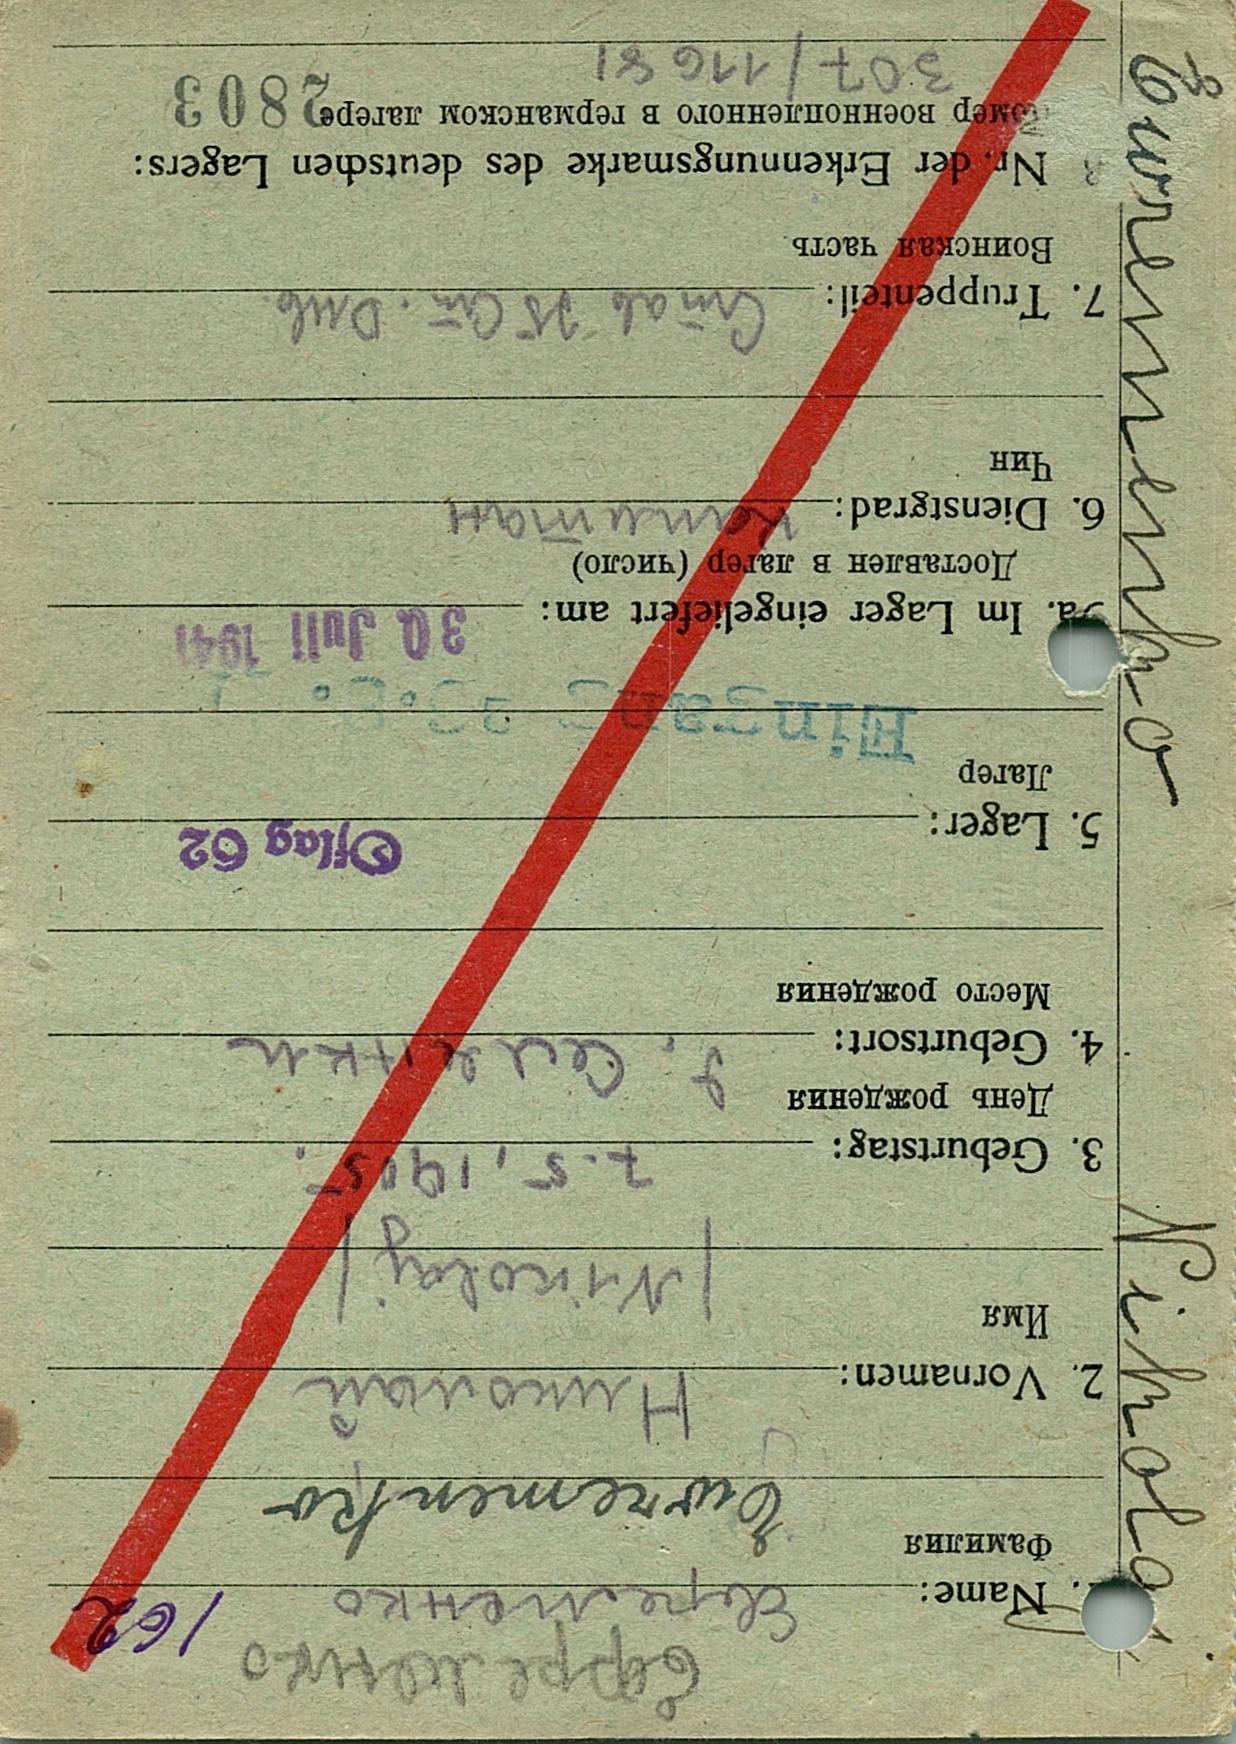 Ефременко
1. Name: Ефременко /62
Фамилия
Ewremenko
2. Vornamen: Николай
Имя
/Nikolaj/
3. Geburtstag: 7.5.1905.
День рождения
4. Geburtsort:
Место рождения
5. Lager: Oflag 62
Лагер
Eingang
5a. Im Lager eingeliefert am: 30. Juli 1941
Доставлен в лагер (число)
6. Dienstgrad: капитан
Чин
7. Truppenteil: Штаб 75 Ст. Див.
Воинская часть
8. Nr. der Erkennungsmarke des deutschen Lagers:
Номер военнопленного в германском лагере 2803
307/11681
Ewremenko Nikolaj